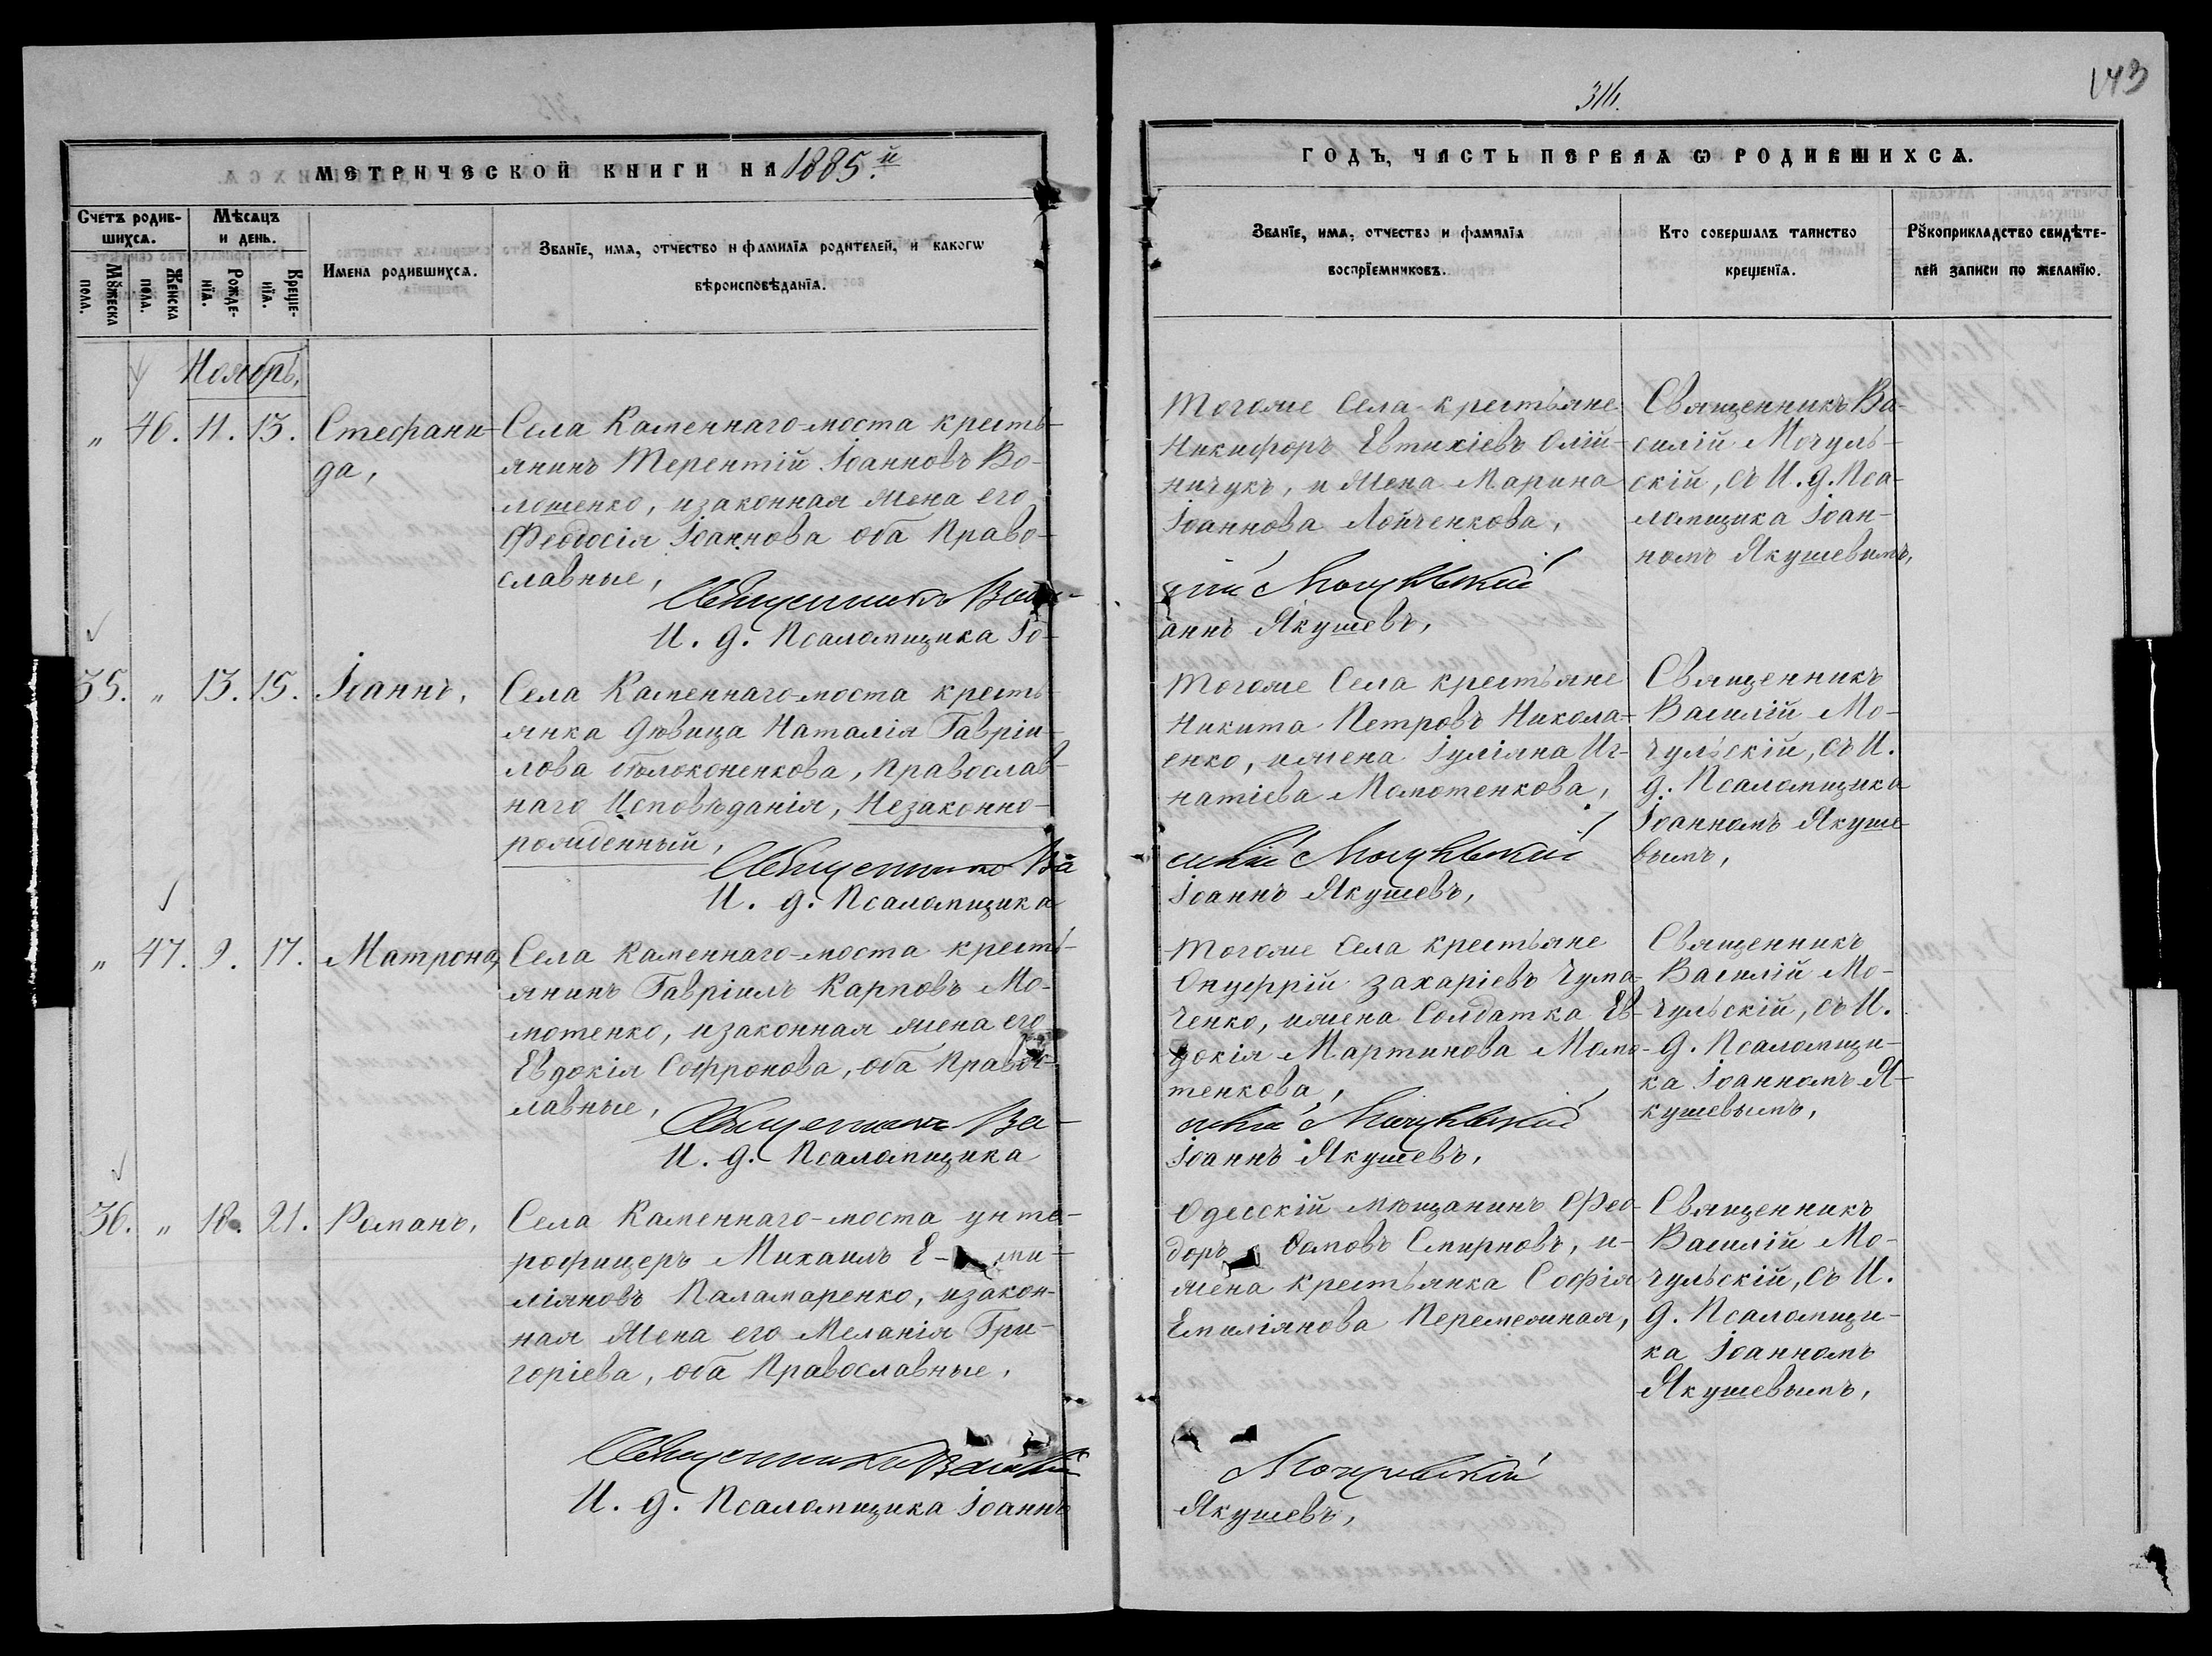 314.
143
МЕТРИЧЕСКОЙ КНИГИ НА 1885.й
ГОДЪ, ЧАСТЬ ПЕРВАЯ Ѡ РОДИВШИХСЯ.
Счетъ родив-
шихся.
Мѣсяцъ
и день.
Мꙋжеска
пола.
Женска
пола.
Рожде-
нїя.
Креще-
нїя.
Имена родившихся.
Званїе, имя, отчество и фамилїя родителей, и какогѡ
вѣроисповѣданїя.
Званїе, имя, отчество и фамилїя
воспрїемниковъ.
Кто совершалъ таинство
крещенїя.
Рꙋкоприкладство свидѣте-
лей записи по желанїю.
Ноябрь,
" 46. 11. 13. Стефани-
да,
Села Каменнаго-моста кресть-
янинъ Терентій Іоанновъ Во-
лошенко, и законная жена его
Феодосія Іоаннова оба Право-
славные,
Священникъ Васи-
И. д. Псаломщика Іо-
Тогоже Села крестьяне
Никифоръ Евтихіевъ Олій-
ничукъ, и жена Марина
Іоаннова Лойченкова,
лій Мочульскій
аннъ Якушевъ,
Священникъ Ва-
силій Мочуль-
скій, съ И. д. Пса-
ломщика Іоан-
номъ Якушевымъ,
35. " 13. 15. Іоаннъ,
Села Каменнаго-моста кресть-
янка дѣвица Наталія Гавріи-
лова Бѣлоконенкова, Православ-
наго Исповѣданія, Незаконно-
рожденный,
Священникъ Ва
И. д. Псаломщика
Тогоже Села крестьяне
Никита Петровъ Никола-
енко, и жена Іуліяна Иг-
натіева Момотенкова,
силій Мочульскій
Іоаннъ Якушевъ,
Священникъ
Василій Мо-
чульскій, съ И.
д. Псаломщика
Іоанномъ Якуше-
вымъ,
" 47. 9. 17. Матрона,
Села Каменнаго-моста кресть-
янинъ Гавріилъ Карповъ Мо-
мотенко, и законная жена его
Евдокія Софронова, оба Правос-
лавные,
Священникъ Ва-
И. д. Псаломщика
Тогоже Села крестьяне
Онуфрій Захаріевъ Чума-
ченко, и жена Солдатка Ев-
докія Мартинова Момо-
тенкова,
силій Мочульскій
Іоаннъ Якушевъ,
Священникъ
Василій Мо-
чульскій, съ И.
д. Псаломщи-
ка Іоанномъ Я-
кушевымъ,
36. " 18. 21. Романъ,
Села Каменнаго-моста унте-
рофицеръ Михаилъ Е- ми-
ліяновъ Паламаренко, и закон-
ная жена его Меланія Гри-
горіева, оба Православные,
Священникъ Василій
И. д. Псаломщика Іоаннъ
Одесскій мѣщанинъ Фео-
доръ Смирновъ, и
жена крестьянка Софія
Емиліянова
Мочульскій
Якушевъ,
Священникъ
Василій Мо-
чульскій, съ И.
д. Псаломщи-
ка Іоанномъ
Якушевымъ,